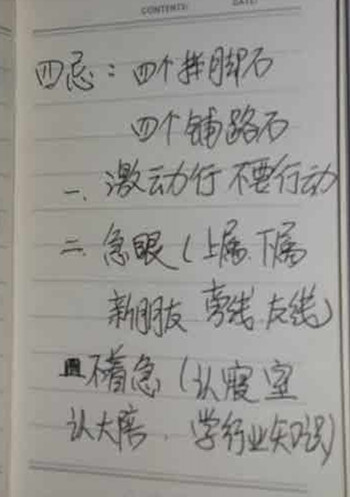 CONTENTS: DATE:
四忌：四个拌脚石
四个铺路石
一、激动行 不要行动
二、急眼（上属、下属
新朋友 旁线 友线）
不着急（认寝室
认大陪、学行业知识）